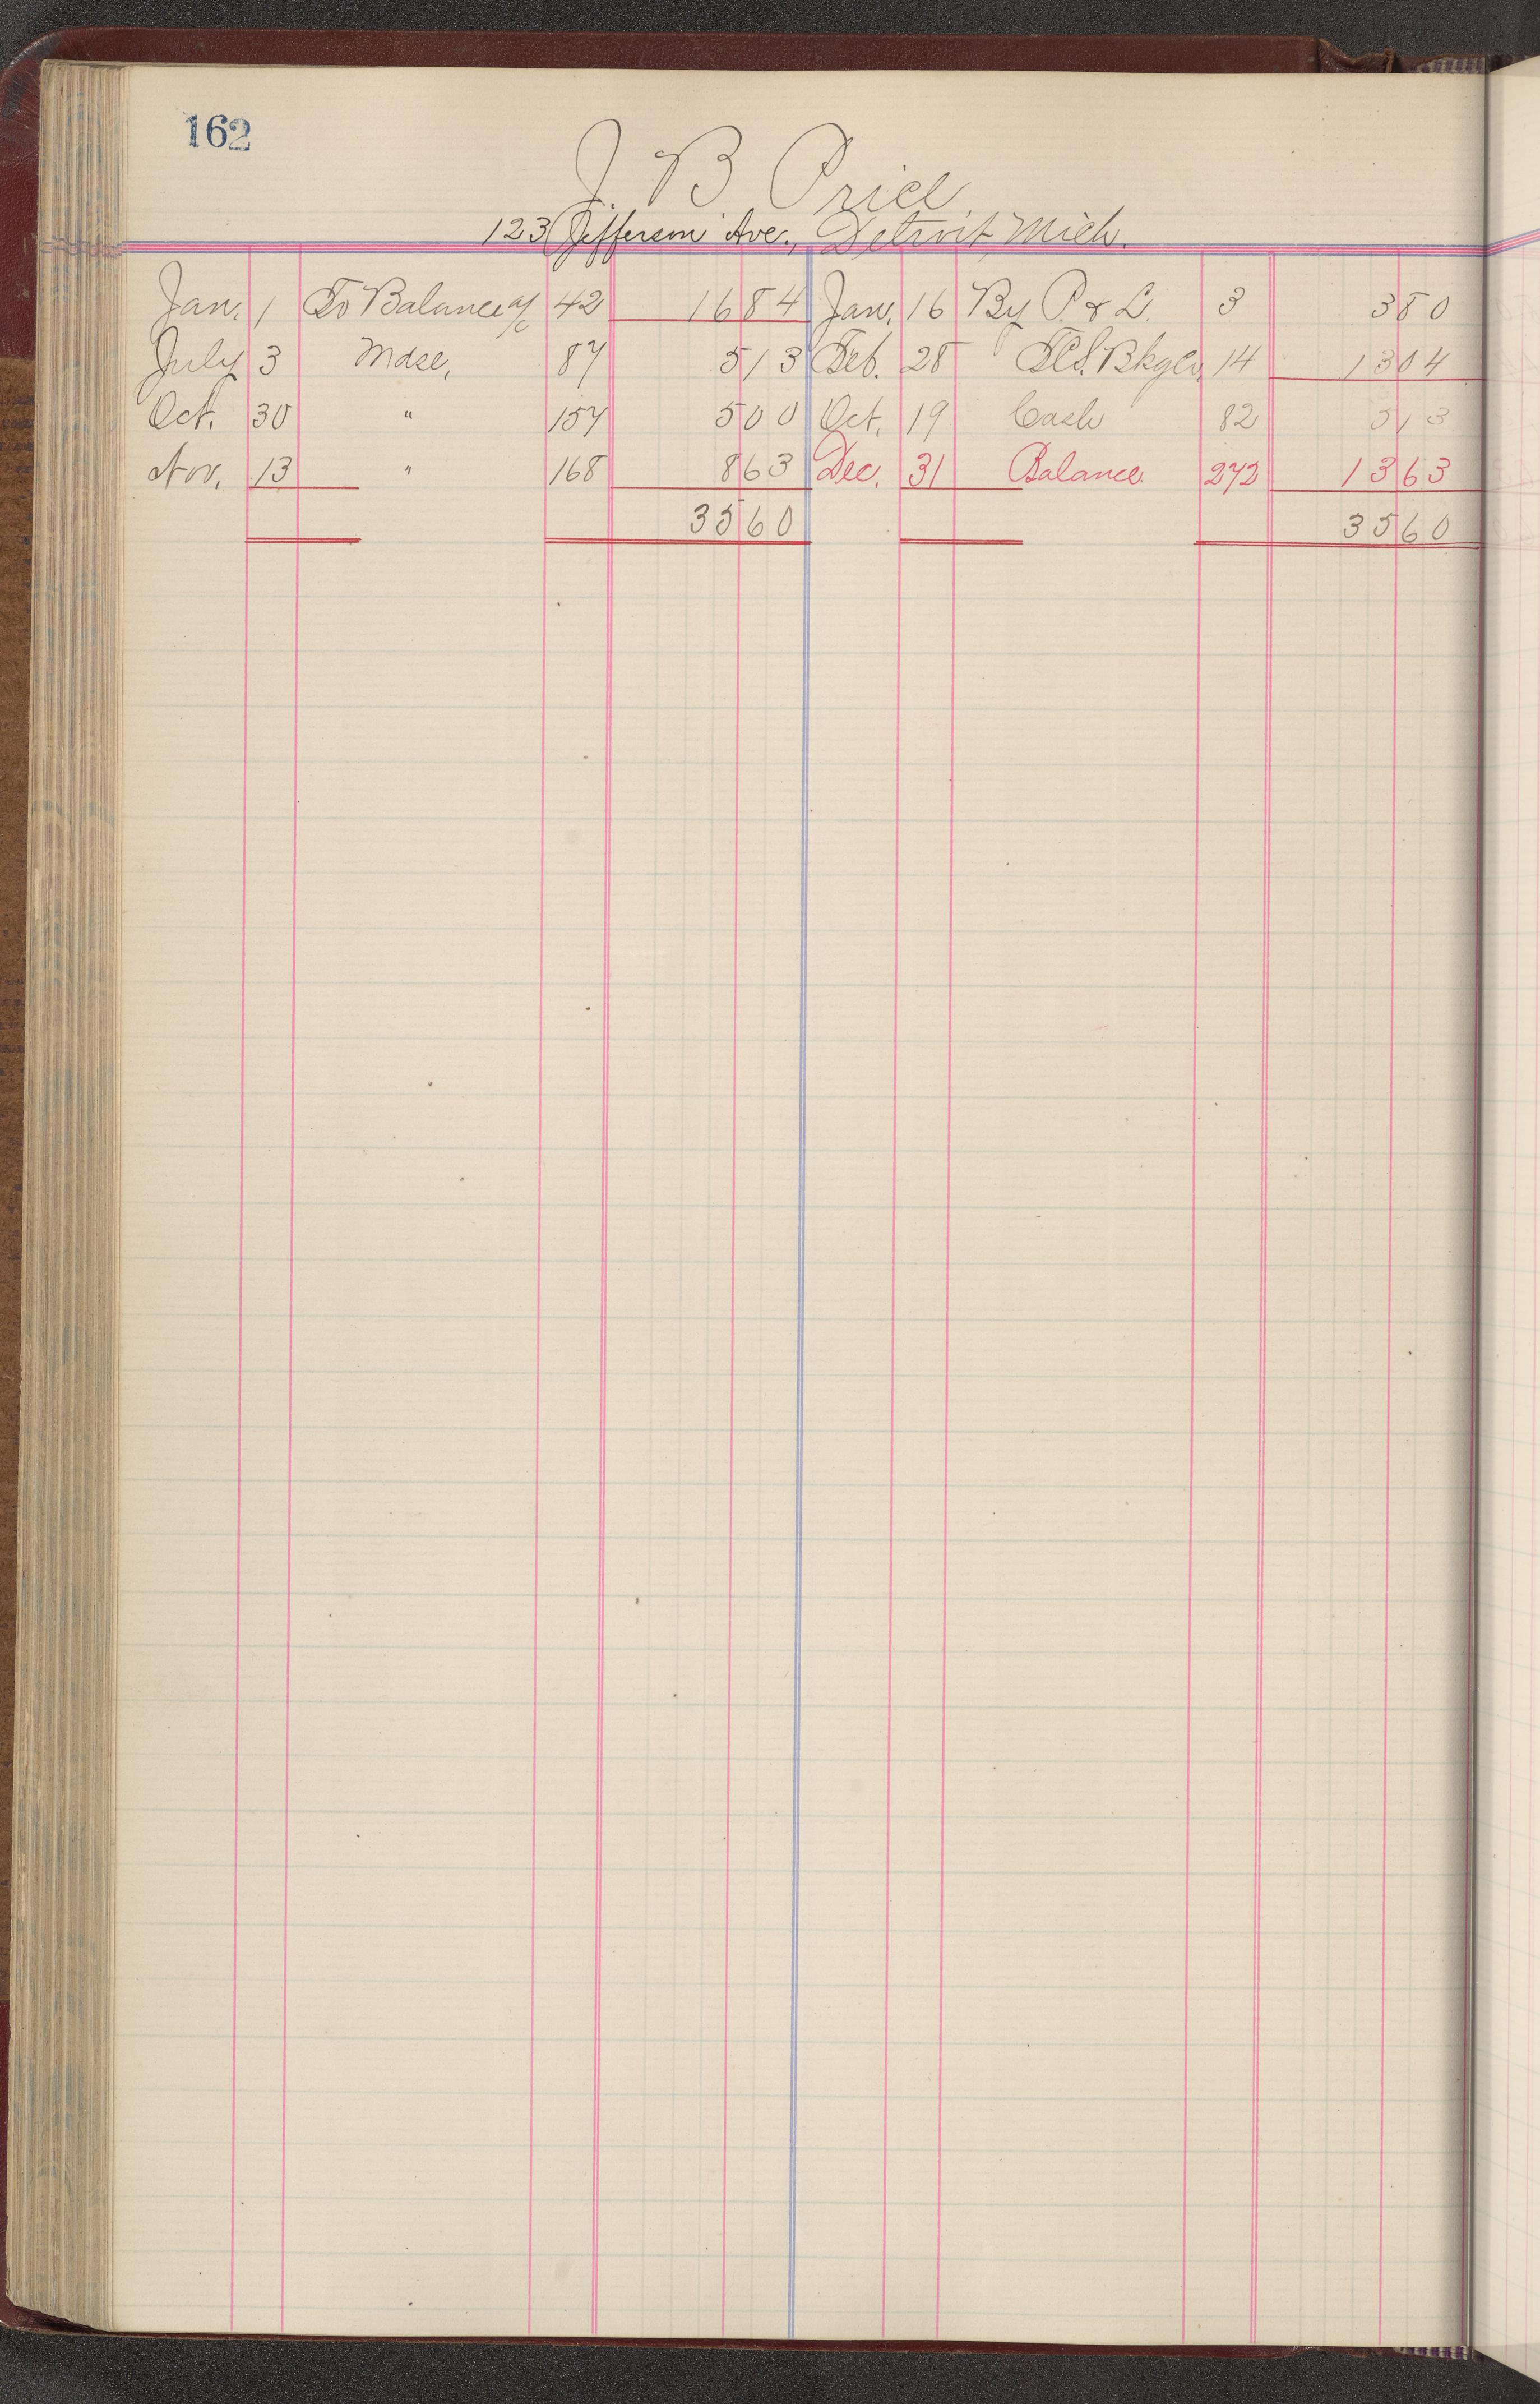 162
J B Price
123 Jefferson Ave., Detroit, Mich.
Jan. 1 To Balance a/c 42 1684 Jan. 16 By P. & L. 3 380
July 3 Mdse, 87 513 Feb. 28 Bkg Co. 14 1304
Oct. 30 " 157 500 Oct. 19 Cash 82 513
Nov. 13 " 168 863 Dec. 31 Balance 272 1363
3560 3560